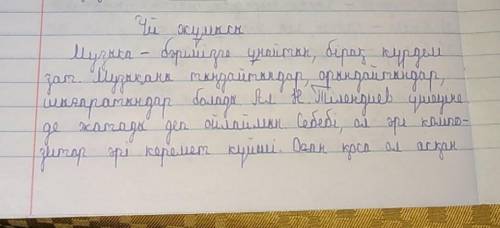 Үй жұмысы
Музыка – бәрімізге ұнайтын, бірақ күрделі
зат. Музыканы тыңдайтындар, орындайтындар,
шығаратындар болады Ал Н. Тілендиев үшеуіне
де жатады деп ойлаймын Себебі, ол әрі компо-
зитор әрі керемет күйші. Оған қоса ол асқан